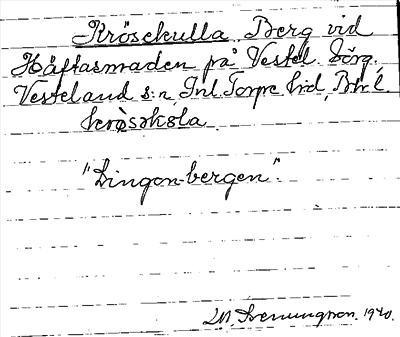 Krösekulla Berg vid
Håftasmaden på Vestel. börg.
Vesteland s:n, Inl. Torpe hd, Bh. l.
krø̀sekøla
"Lingon-bergen".
M. Hemmingson. 1940.